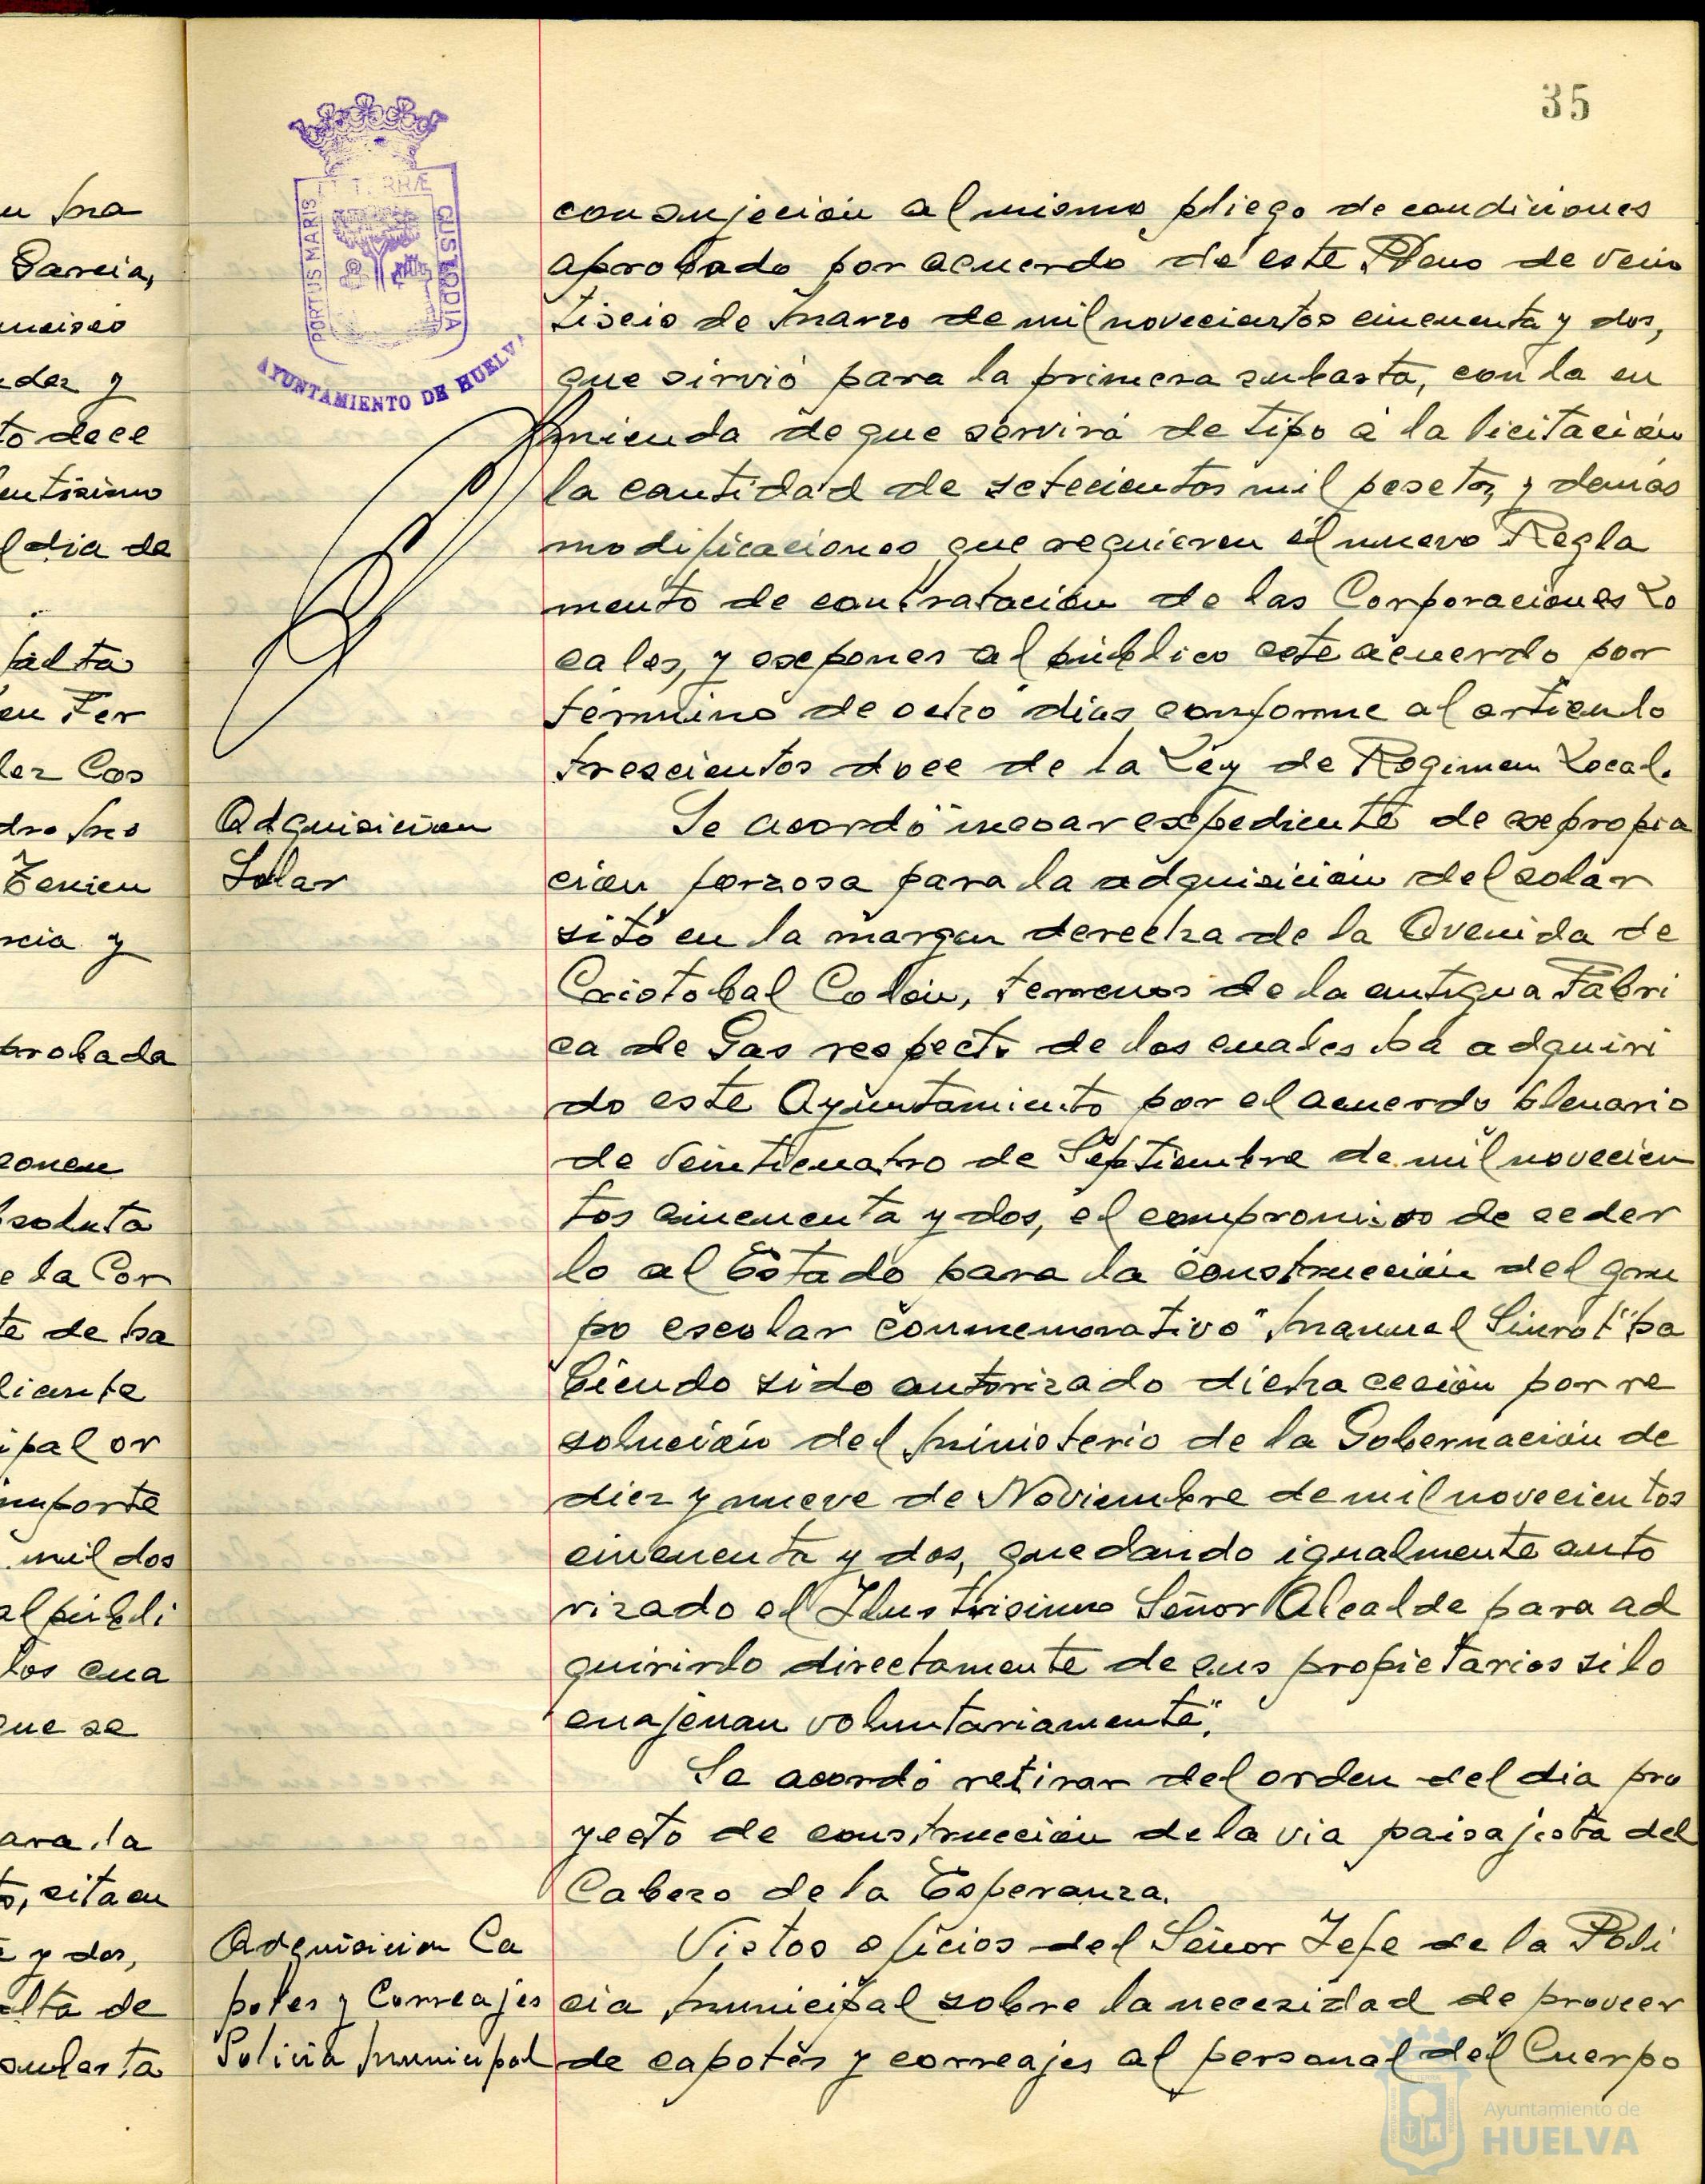 35
PORTUS MARIS
ET TERRÆ
CUSTODIA
AYUNTAMIENTO DE HUELVA
con sujeción al mismo pliego de condiciones
aprobado por acuerdo de este Pleno de vein
tiseis de Marzo de mil novecientos cincuenta y dos,
que sirvió para la primera subasta, con la en
mienda de que servirá de tipo a la licitación
la cantidad de setecientos mil pesetas, y demás
modificaciones que requieren el nuevo Regla
mento de contratación de las Corporaciones Lo
cales, y exponer al público este acuerdo por
término de ocho dias conforme al articulo
trescientos doce de la Ley de Regimen Local.
Adquisicion
Solar
Se acordó "incoar expediente de expropia
ción forzosa para la adquisición del solar
sitó en la margen derecha de la Avenida de
Cristobal Colón, terrenos de la antigua Fabri
ca de Gas respecto de los cuales ha adquiri
do este Ayuntamiento por el acuerdo plenario
de veinticuatro de Septiembre de mil novecien
tos cincuenta y dos, el compromiso de ceder
lo al Estado para la construcción del gru
po escolar conmemorativo "Manuel Siurot" ha
biendo sido autorizado dicha cesión por re
solución del Ministerio de la Gobernación de
diez y nueve de Noviembre de mil novecientos
cincuenta y dos, quedando igualmente auto
rizado el Ilustrisimo Señor Alcalde para ad
quirirlo directamente de sus propietarios si lo
enajenan voluntariamente".
Se acordó retirar del orden del dia pro
yecto de construcción de la via paisajista del
Cabezo de la Esperanza.
Adquisicion Ca
potes y Correajes
Policia Municipal
Vistos oficios del Señor Jefe de la Poli
cia Municipal sobre la necesidad de proveer
de capotes y correajes al personal del Cuerpo
Garcia,
der y
to dece
l dia de
falta
en Fer
lez Cos
Tenien
rcia y
probada
ponen
bsoluta
e la Cor
te de ha
liante
ipal or
importe
mil dos
al públi
los cua
que se
ara la
o, sita en
e y dos,
alta de
subasta
Ayuntamiento de
HUELVA